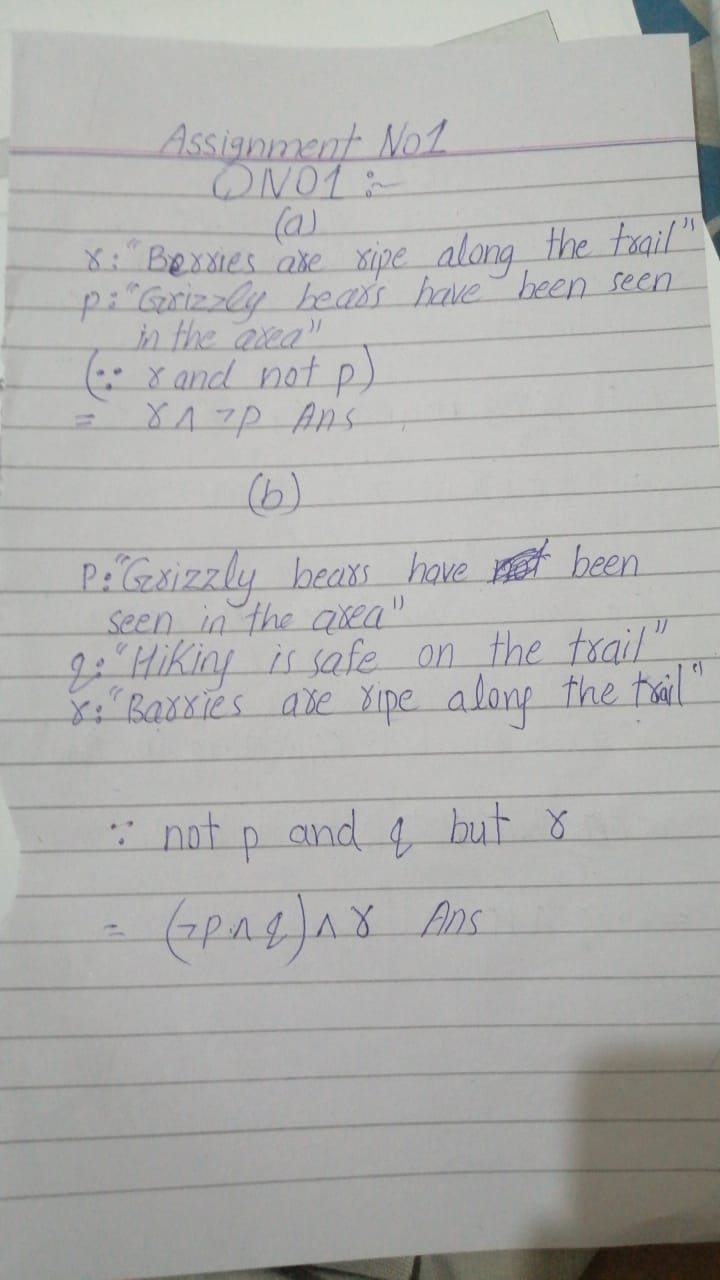 Assignment No1
QNO1 :-
(a)
r: "Berries are ripe along the trail"
p: "Grizzly bears have been seen
in the area"
(∵ r and not p)
= r ∧ ¬p Ans
(b)
P: "Grizzly bears have been
seen in the area"
q: "Hiking is safe on the trail"
r: "Barries are ripe along the trail"
∵ not p and q but r
= (¬p ∧ q) ∧ r Ans